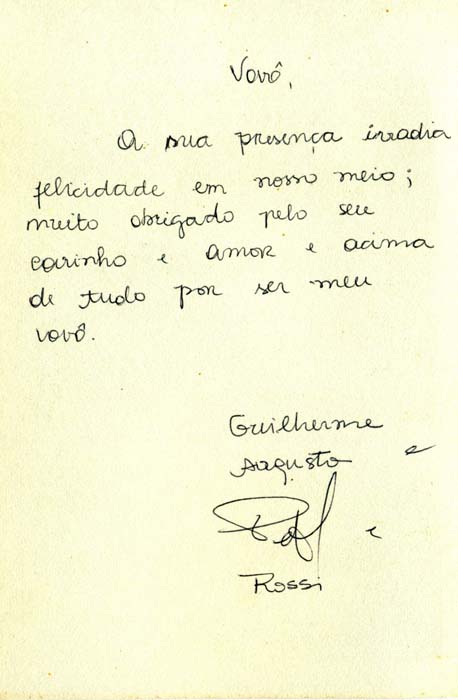 Vovô,
A sua presença irradia
felicidade em nosso meio;
muito obrigado pelo seu
carinho e amor e acima
de tudo por ser meu
vovô.
Guilherme
Augusto e
e
Rossi